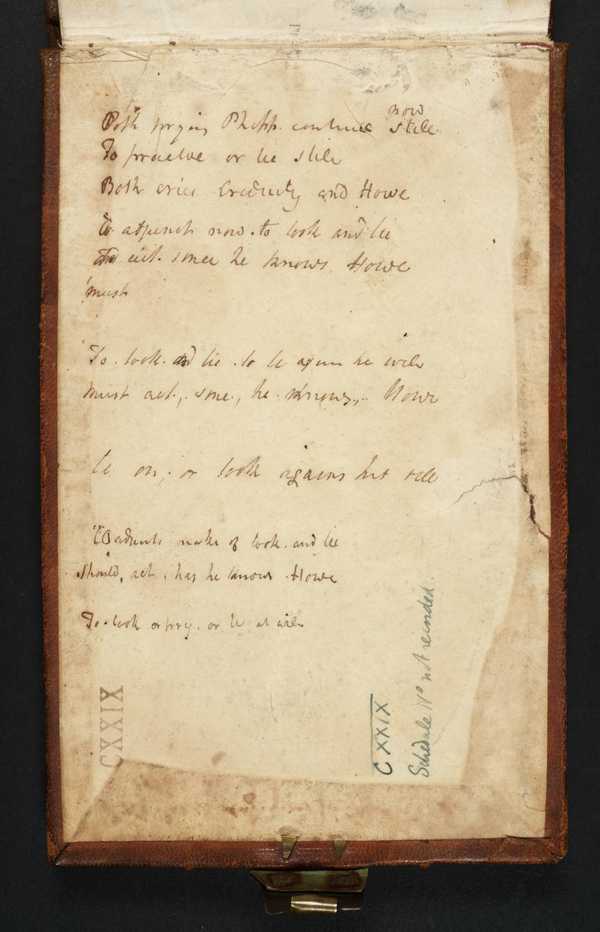 now
Both prying Phipp. continue still
To practice or lie still
Both cries Credulity and Howe
To adjuncts now. to look and lie
To act. since he knows Howe
must
To. look. and lie. to lie again he will
must act., since, he. knows,. Howe
lie on, or look against his will
adjuncts make of look. and lie
Should, act. has he knows Howe
To. look or pry. or lie at will
CXXIX
CXXIX
Schedule No not recorded.